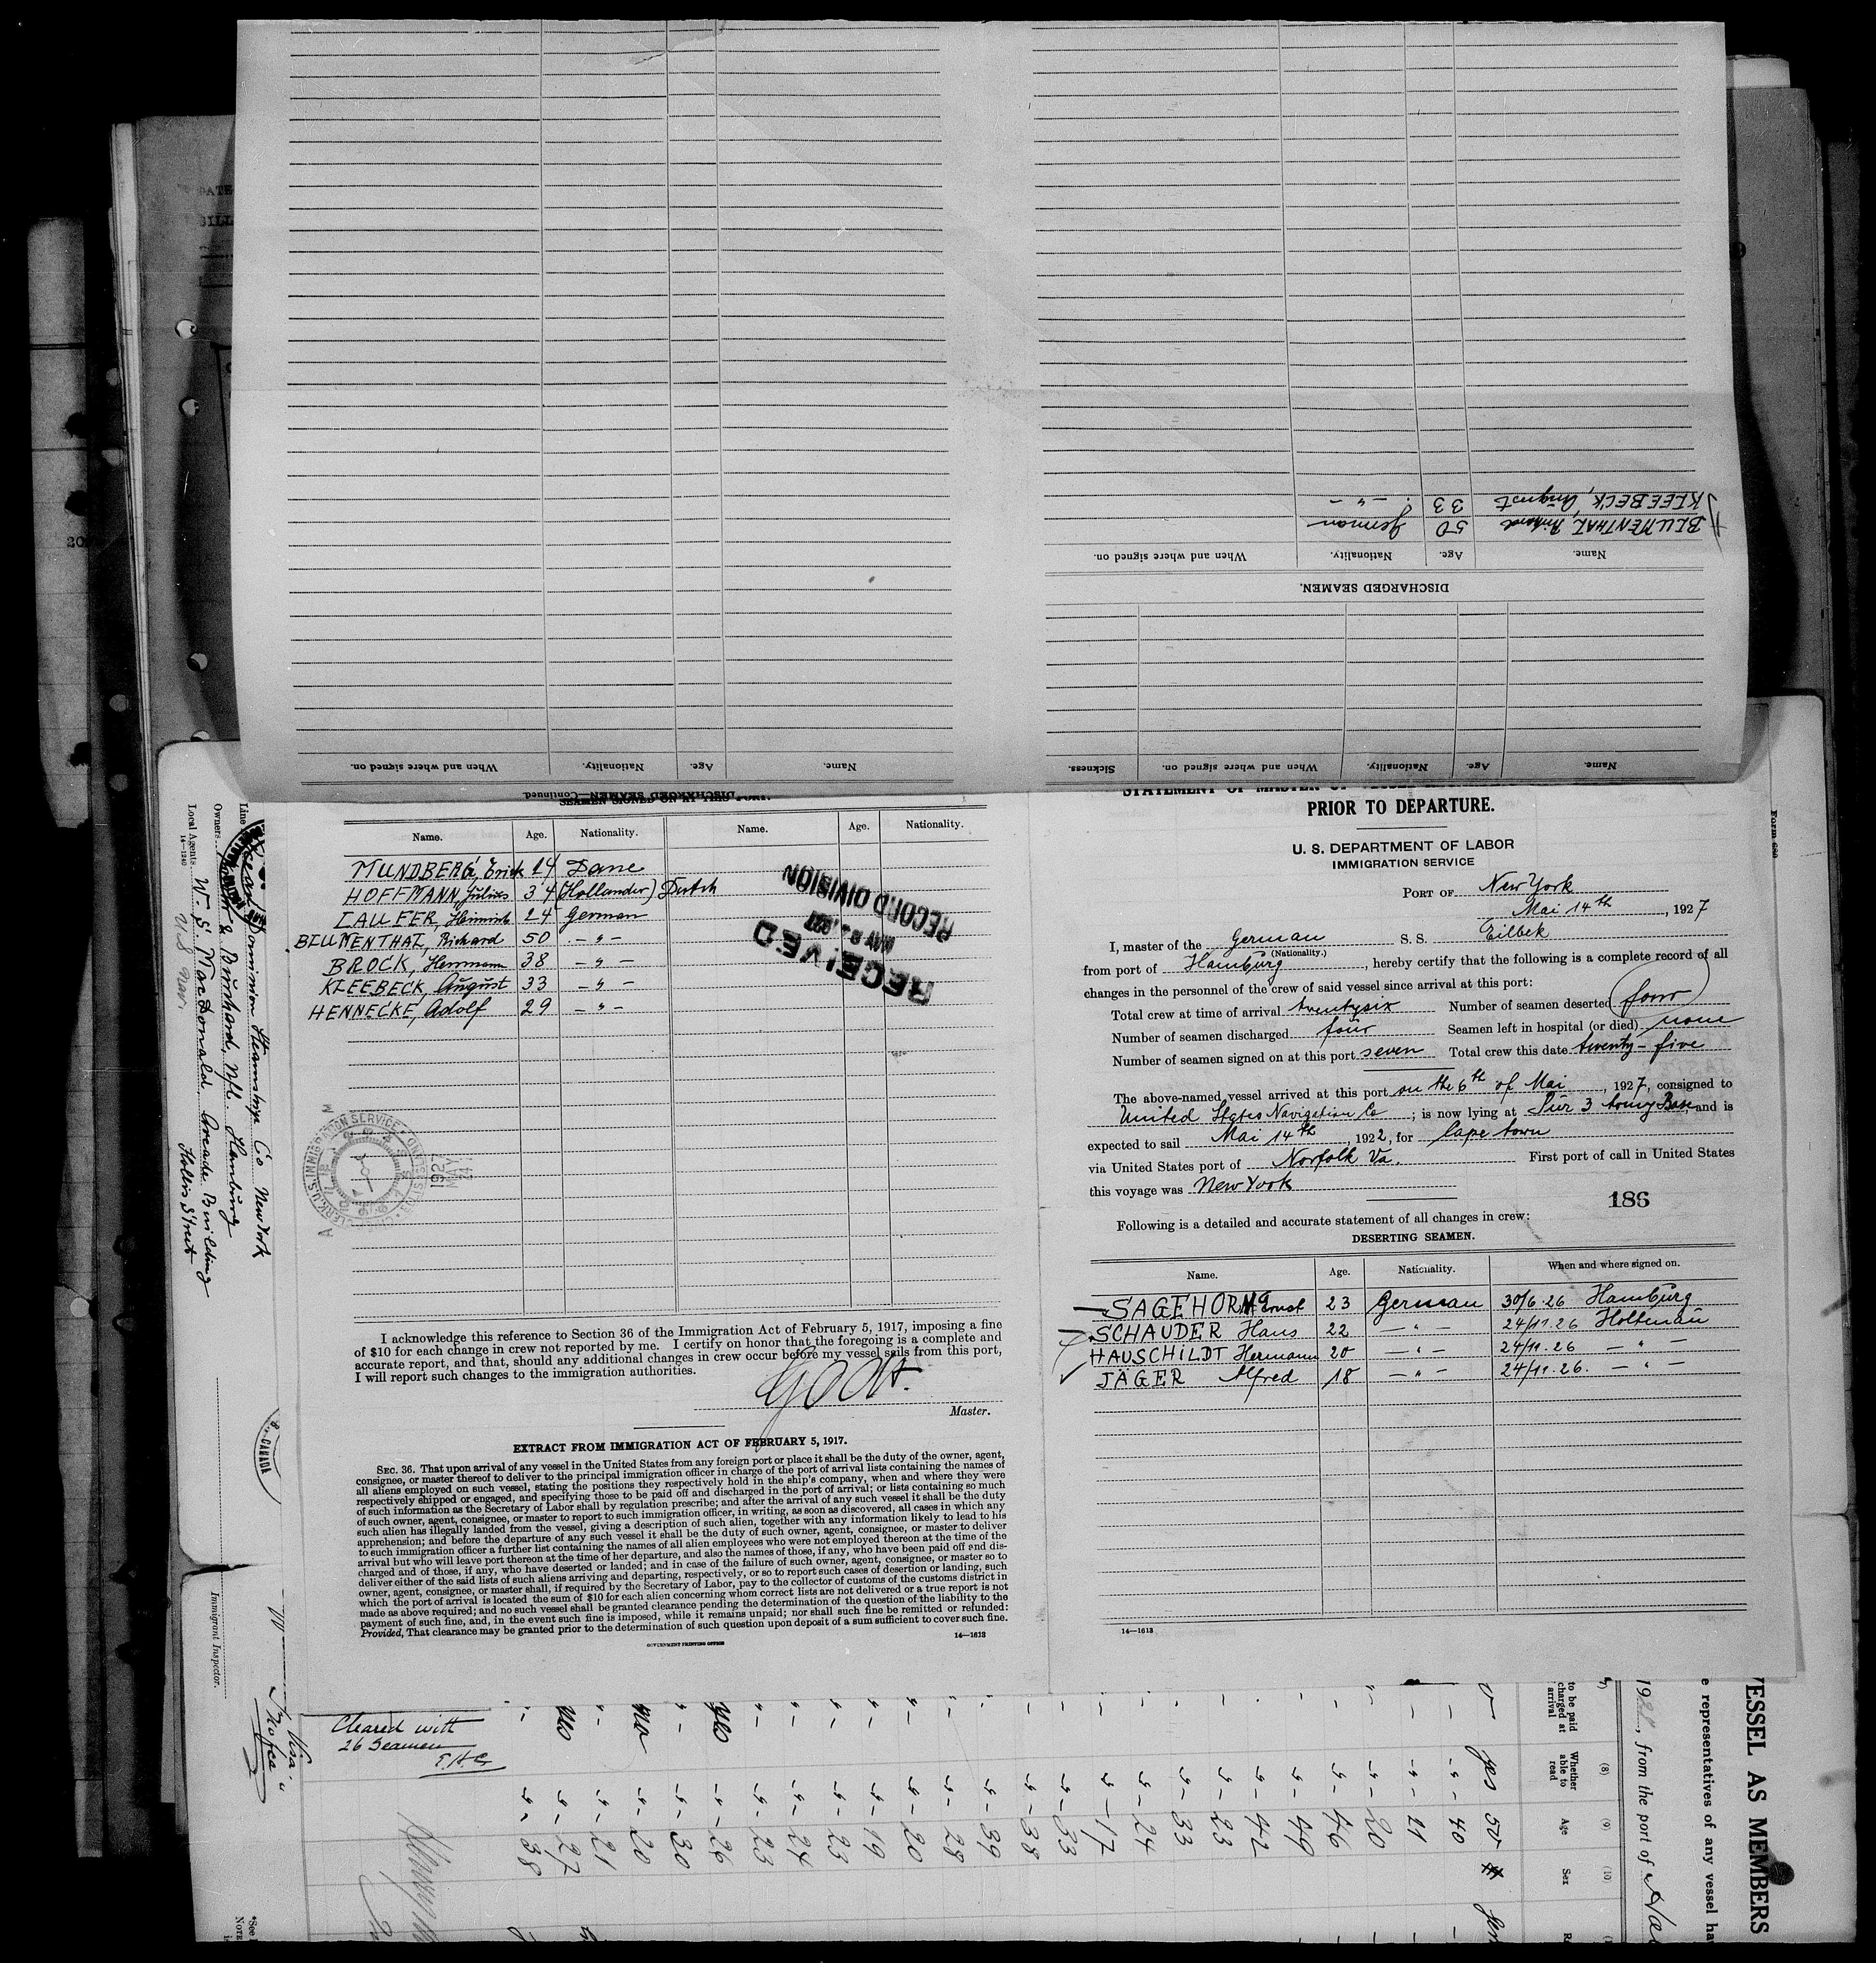 Sickness.
When and where signed on.
Nationality.
Age.
Name.
DISCHARGED SEAMEN.
Name.
Age.
Nationality.
When and where signed on.
BLUMENTHAL, Richard 50 German
KLEEBECK, August 33 - " -
DISCHARGED SEAMEN—Continued.
Name.
Age.
Nationality.
When and where signed on.
SEAMEN SIGNED ON AT THIS PORT.
Name. Age. Nationality. Name. Age. Nationality.
MUNDBERG, Erick 14 Dane
HOFFMANN, Julius 34 (Hollander) Dutch
LAUFER, Heinrich 24 German
BLUMENTHAL, Richard 50 - " -
BROCK, Hermann 38 - " -
KLEEBECK, August 33 - " -
HENNECKE, Adolf 29 - " -
RECEIVED
RECORD DIVISION
I acknowledge this reference to Section 36 of the Immigration Act of February 5, 1917, imposing a fine
of $10 for each change in crew not reported by me. I certify on honor that the foregoing is a complete and
accurate report, and that, should any additional changes in crew occur before my vessel sails from this port,
I will report such changes to the immigration authorities.
Master.
EXTRACT FROM IMMIGRATION ACT OF FEBRUARY 5, 1917.
SEC. 36. That upon arrival of any vessel in the United States from any foreign port or place it shall be the duty of the owner, agent,
consignee, or master thereof to deliver to the principal immigration officer in charge of the port of arrival lists containing the names of
all aliens employed on such vessel, stating the positions they respectively hold in the ship's company, when and where they were
respectively shipped or engaged, and specifying those to be paid off and discharged in the port of arrival; or lists containing so much
of such information as the Secretary of Labor shall by regulation prescribe; and after the arrival of any such vessel it shall be the duty
of such owner, agent, consignee, or master to report to such immigration officer, in writing, as soon as discovered, all cases in which any
such alien has illegally landed from the vessel, giving a description of such alien, together with any information likely to lead to his
apprehension; and before the departure of any such vessel it shall be the duty of such owner, agent, consignee, or master to deliver
to such immigration officer a further list containing the names of all alien employees who were not employed thereon at the time of the
arrival but who will leave port thereon at the time of her departure, and also the names of those, if any, who have been paid off and dis-
charged and of those, if any, who have deserted or landed; and in case of the failure of such owner, agent, consignee, or master so to
deliver either of the said lists of such aliens arriving and departing, respectively, or so to report such cases of desertion or landing, such
owner, agent, consignee, or master shall, if required by the Secretary of Labor, pay to the collector of customs of the customs district in
which the port of arrival is located the sum of $10 for each alien concerning whom correct lists are not delivered or a true report is not
made as above required; and no such vessel shall be granted clearance pending the determination of the question of the liability to the
payment of such fine, and, in the event such fine is imposed, while it remains unpaid; nor shall such fine be remitted or refunded:
Provided, That clearance may be granted prior to the determination of such question upon deposit of a sum sufficient to cover such fine.
GOVERNMENT PRINTING OFFICE
14—1613
PRIOR TO DEPARTURE.
U. S. DEPARTMENT OF LABOR
IMMIGRATION SERVICE
PORT OF New York
Mai 14th, 1927
I, master of the German S. S. Eilbek
(Nationality.)
from port of Hamburg, hereby certify that the following is a complete record of all
changes in the personnel of the crew of said vessel since arrival at this port:
Total crew at time of arrival twentysix Number of seamen deserted four
Number of seamen discharged four Seamen left in hospital (or died) none
Number of seamen signed on at this port seven Total crew this date twenty-five
The above-named vessel arrived at this port on the 6th of Mai, 1927, consigned to
United States Navigation Co; is now lying at Pier 3 Army Base, and is
expected to sail Mai 14th, 1922, for Cape town
via United States port of Norfolk Va. First port of call in United States
this voyage was New York
186
Following is a detailed and accurate statement of all changes in crew:
DESERTING SEAMEN.
Name. Age. Nationality. When and where signed on.
SAGEHORN Ernst 23 German 30/6.26 Hamburg
SCHAUDER Hans 22 - " - 24/11.26 Holtenau
HAUSCHILDT Hermann 20 - " - 24/11.26 - " -
JÄGER Alfred 18 - " - 24/11.26. - " -
14—1613
Form 680
Line Dominion Steamship Co New York
Owners Hamburg
Local Agents W. S. MacDonald Arcade Building
Hollis Street
14—1240
CANADA
Immigrant Inspector.
Cleared with
26 Seamen
VESSEL AS MEMBERS
e representatives of any vessel ha
, from the port of
to be paid
charged at
arrival
(8)
Whether
able to
read
(9)
Age
(10)
Sex
yes 50
40
21
20
46
49
42
23
33
24
17
33
38
39
28
20
19
23
24
23
26
30
20
21
27
38